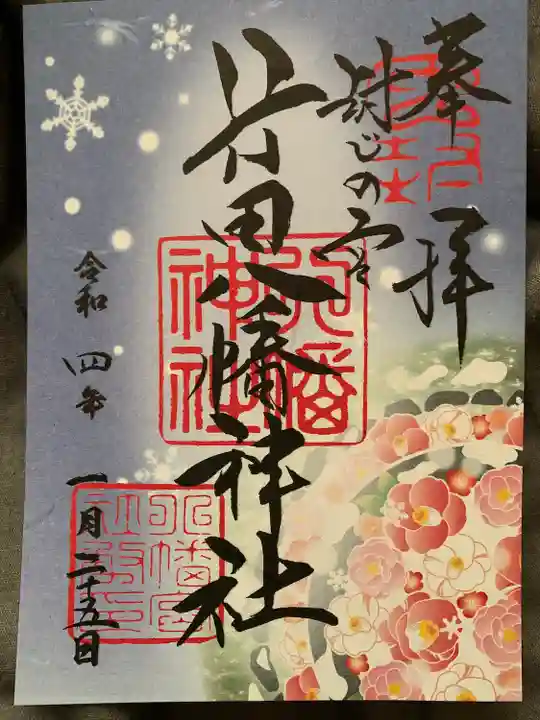 奉拝
封じの宮
田八幡神社
八幡
神社
令和四年 一月二十五日
八幡宮
社務所印